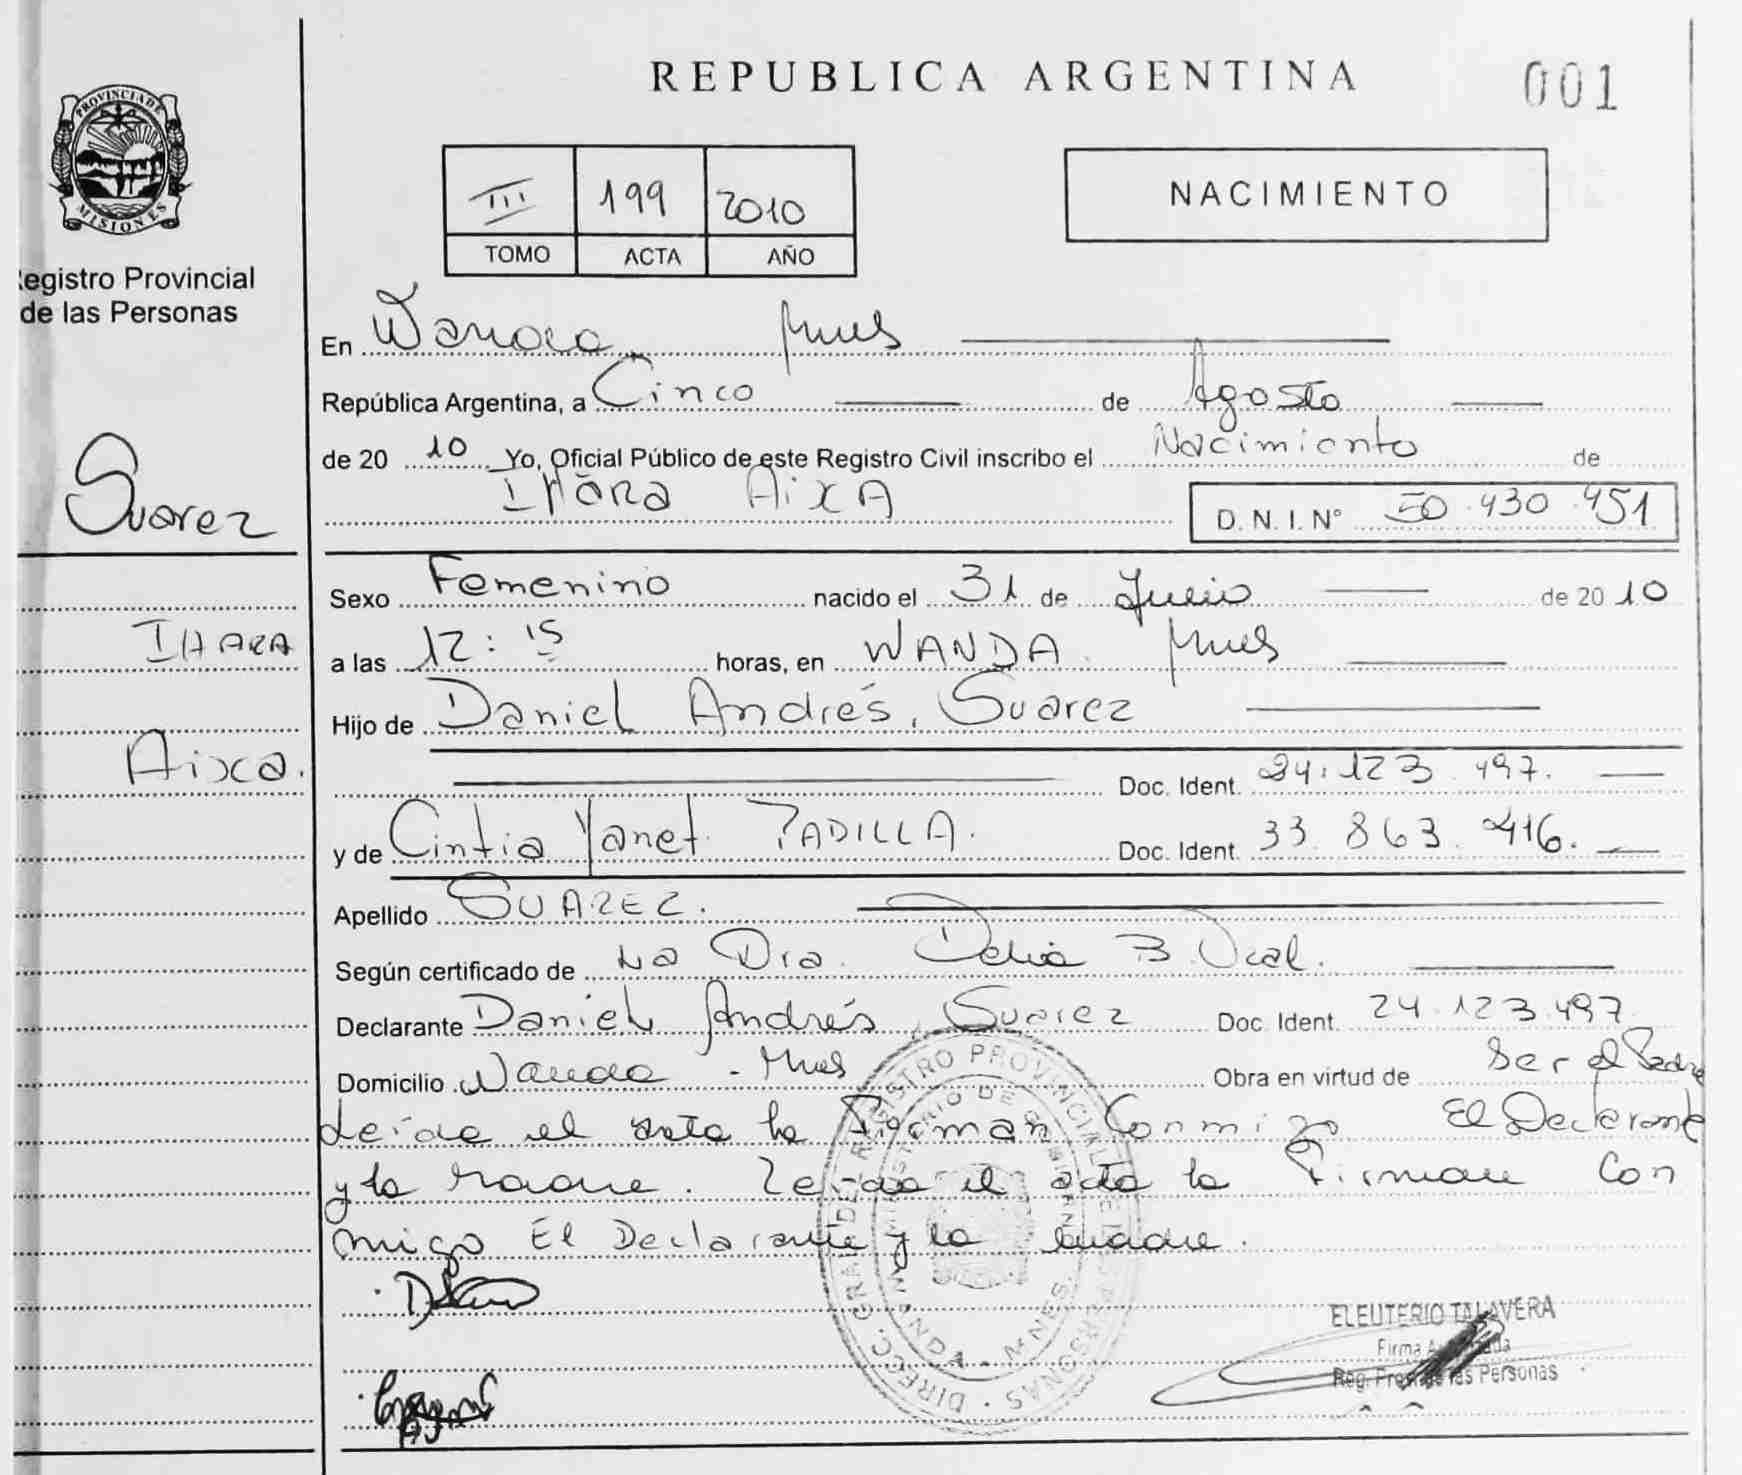 REPUBLICA ARGENTINA
001
PROVINCIA DE
MISIONES
egistro Provincial
de las Personas
III 199 2010
TOMO ACTA AÑO
NACIMIENTO
En Wanda Mnes
República Argentina, a Cinco de Agosto
de 20 10 Yo, Oficial Público de este Registro Civil inscribo el Nacimiento de
IHARA AiXA D. N. I. Nº 50.430.451
Suarez
IHARA
Aixa.
Sexo Femenino nacido el 31 de Julio de 20 10
a las 12:15 horas, en WANDA Mnes
Hijo de Daniel Andrés, Suarez
Doc. Ident. 24.123.497.
y de Cintia Yanet. PADILLA. Doc. Ident. 33.863.416.
Apellido SUAREZ.
Según certificado de La Dra. Delia B.
Declarante Daniel Andrés, Suarez Doc. Ident. 24.123.497
Domicilio Wanda - Mnes Obra en virtud de Ser el Padre
Leída el acta la Firman Conmigo El Declarante
y la Madre. Leída el acta la Firman Con
migo El Declarante y la Madre.
DIRECC. GRAL. DEL REGISTRO PROVINCIAL DE LAS PERSONAS
MINISTERIO DE GOBIERNO
WANDA - MNES.
ELEUTERIO TALAVERA
Firma Autorizada
Reg. Prov. de las Personas